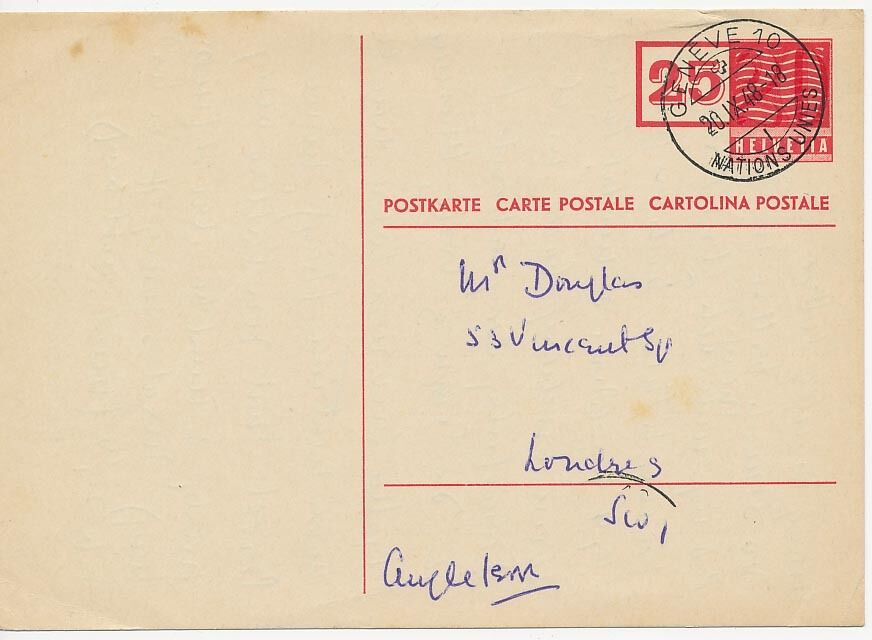 25
HELVETIA
GENÈVE 10
20.IX.48-18
NATIONS UNIES
POSTKARTE CARTE POSTALE CARTOLINA POSTALE
Mr Douglas
53 Vincent Sq
Londres
SW1
Angleterre